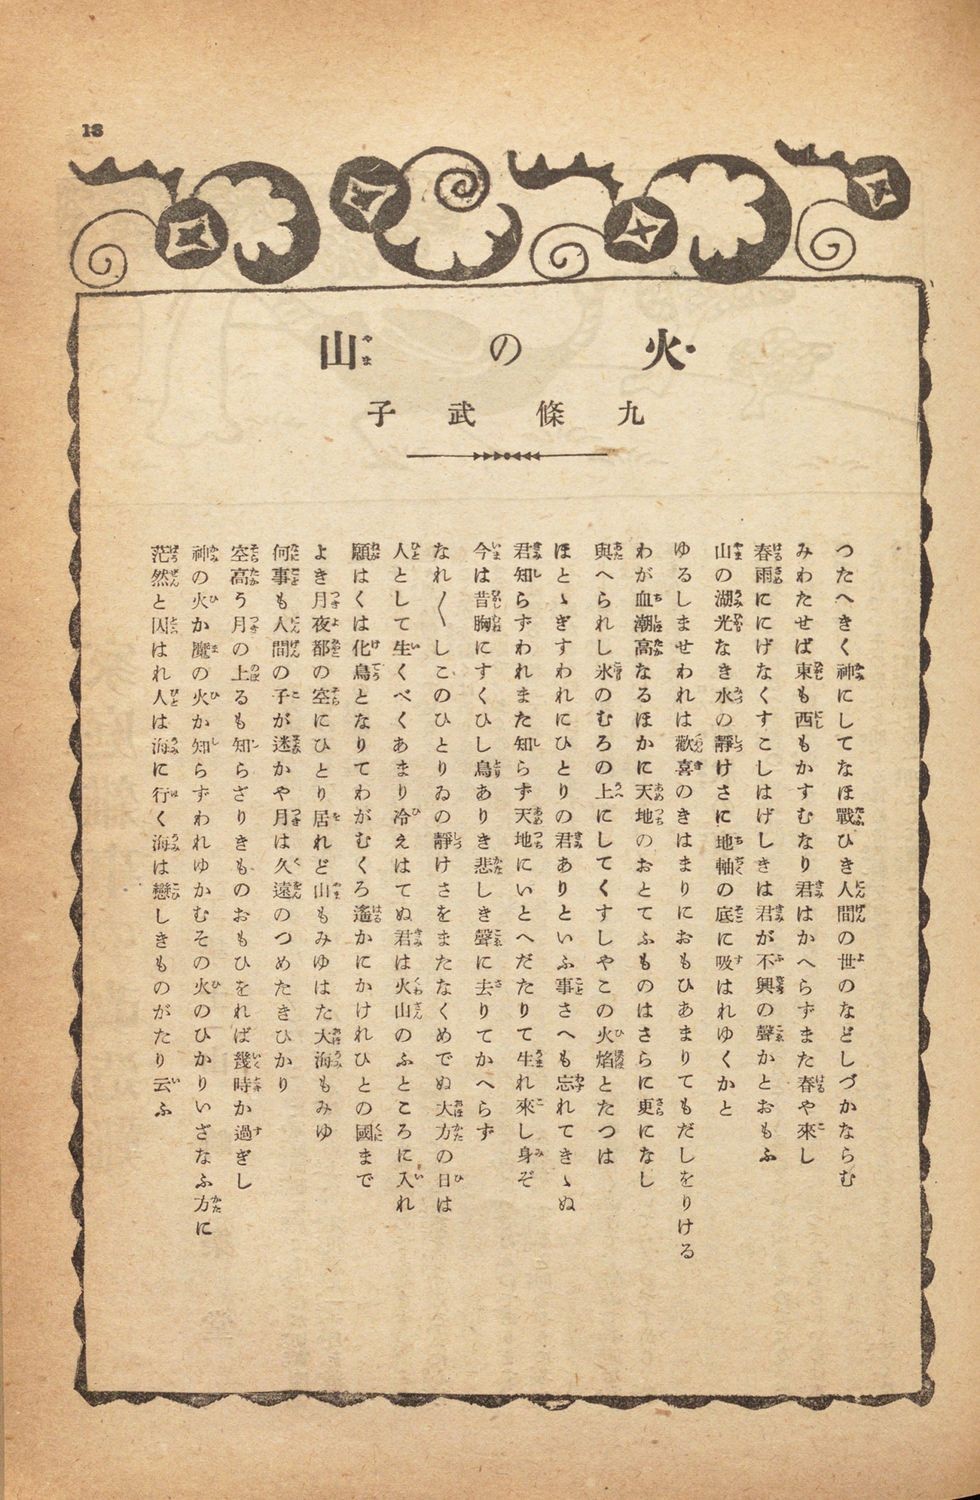 13
火の山
九條武子
つたへきく神にしてなほ戰ひき人間の世のなどしづかならむ
みわたせば東も西もかすむなり君はかへらずまた春や來し
春雨ににげなくすこしはげしきは君が不興の聲かとおもふ
山の湖光なき水の靜けさに地軸の底に吸はれゆくかと
ゆるしませわれは歡喜のきはまりにおもひあまりてもだしをりける
わが血潮高なるほかに天地のおとてふものはさらに更になし
與へられし氷のむろの上にしてくすしやこの火焰とたつは
ほとゝぎすわれにひとりの君ありといふ事さへも忘れてきゝぬ
君知らずわれまた知らず天地にいとへだたりて生れ來し身ぞ
今は昔胸にすくひし鳥ありき悲しき聲に去りてかへらず
なれ〳〵しこのひとりゐの靜けさをまたなくめでぬ大方の日は
人として生くべくあまり冷えはてぬ君は火山のふところに入れ
願はくは化鳥となりてわがむくろ遙かにかけれひとの國まで
よき月夜都の空にひとり居れど山もみゆはた大海もみゆ
何事も人間の子が迷かや月は久遠のつめたきひかり
空高う月の上るも知らざりきものおもひをれば幾時か過ぎし
神の火か魔の火か知らずわれゆかむその火のひかりいざなふ方に
茫然と囚はれ人は海に行く海は戀しきものがたり云ふ